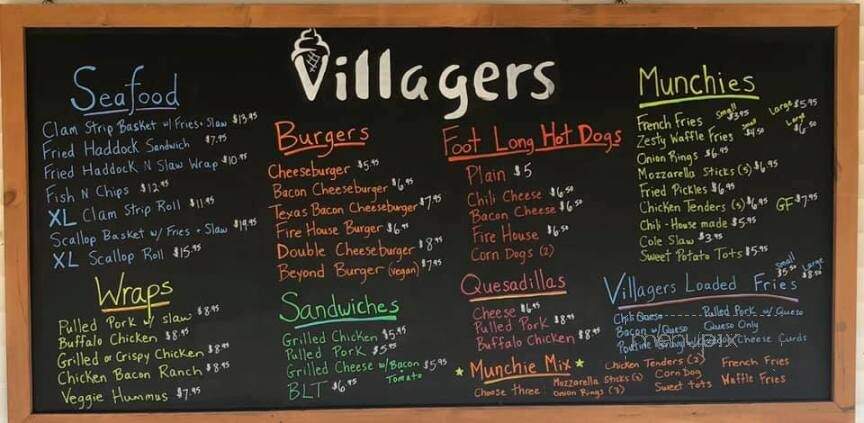 Villagers
Seafood
Clam Strip Basket w/ Fries + Slaw $13.95
Fried Haddock Sandwich $7.95
Fried Haddock N Slaw Wrap $10.95
Fish N Chips $12.95
XL Clam Strip Roll $11.95
Scallop Basket w/ Fries + Slaw $19.95
XL Scallop Roll $15.95
Wraps
Pulled Pork w/ slaw $8.95
Buffalo Chicken $8.95
Grilled or Crispy Chicken $8.95
Chicken Bacon Ranch $8.95
Veggie Hummus $7.95
Burgers
Cheeseburger $5.95
Bacon Cheeseburger $6.95
Texas Bacon Cheeseburger $7.95
Fire House Burger $6.95
Double Cheeseburger $8.95
Beyond Burger (vegan) $7.95
Sandwiches
Grilled Chicken $5.95
Pulled Pork $5.95
Grilled Cheese w/ Bacon $5.95
Tomato
BLT $6.95
Foot Long Hot Dogs
Plain $5
Chili Cheese $6.50
Bacon Cheese $6.50
Fire House $6.50
Corn Dogs (2)
Quesadillas
Cheese $6.95
Pulled Pork $8.95
Buffalo Chicken $8.95
Munchie Mix
Choose three:
Mozzarella Sticks (3)
Onion Rings (3)
Chicken Tenders (2)
Corn Dog
Sweet tots
French Fries
Waffle Fries
Munchies
French Fries Small $3.95 Large $5.95
Zesty Waffle Fries Small $4.50 Large $6.50
Onion Rings $6.95
Mozzarella Sticks (5) $6.95
Fried Pickles $6.95
Chicken Tenders (5) $6.95 GF $7.95
Chili - House made $5.95
Cole Slaw $3.95
Sweet Potato Tots $5.95
Villagers Loaded Fries
Small $5.50 Large $8.50
Chili Queso
Bacon w/ Queso
Poutine
Pulled Pork w/ Queso
Queso Only
Cheese Curds
menupix